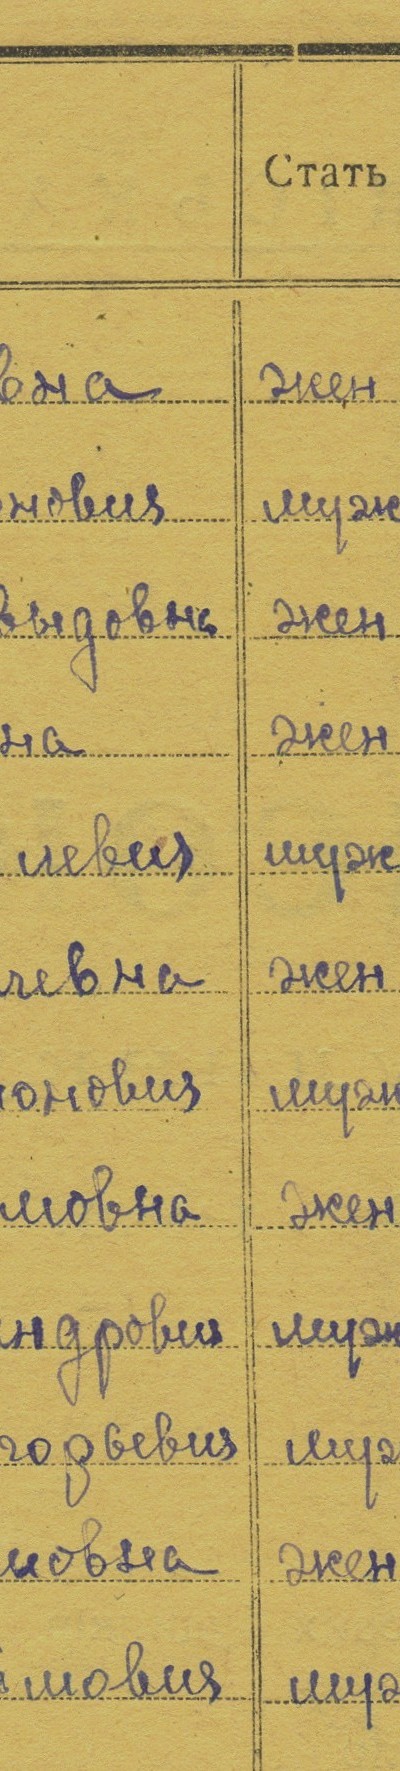 Стать
вна жен
нович муж
выдовна жен
на жен
левич муж
чевна жен
онович муж
мовна жен
ндрович муж
горьевич муж
мовна жен
мович муж